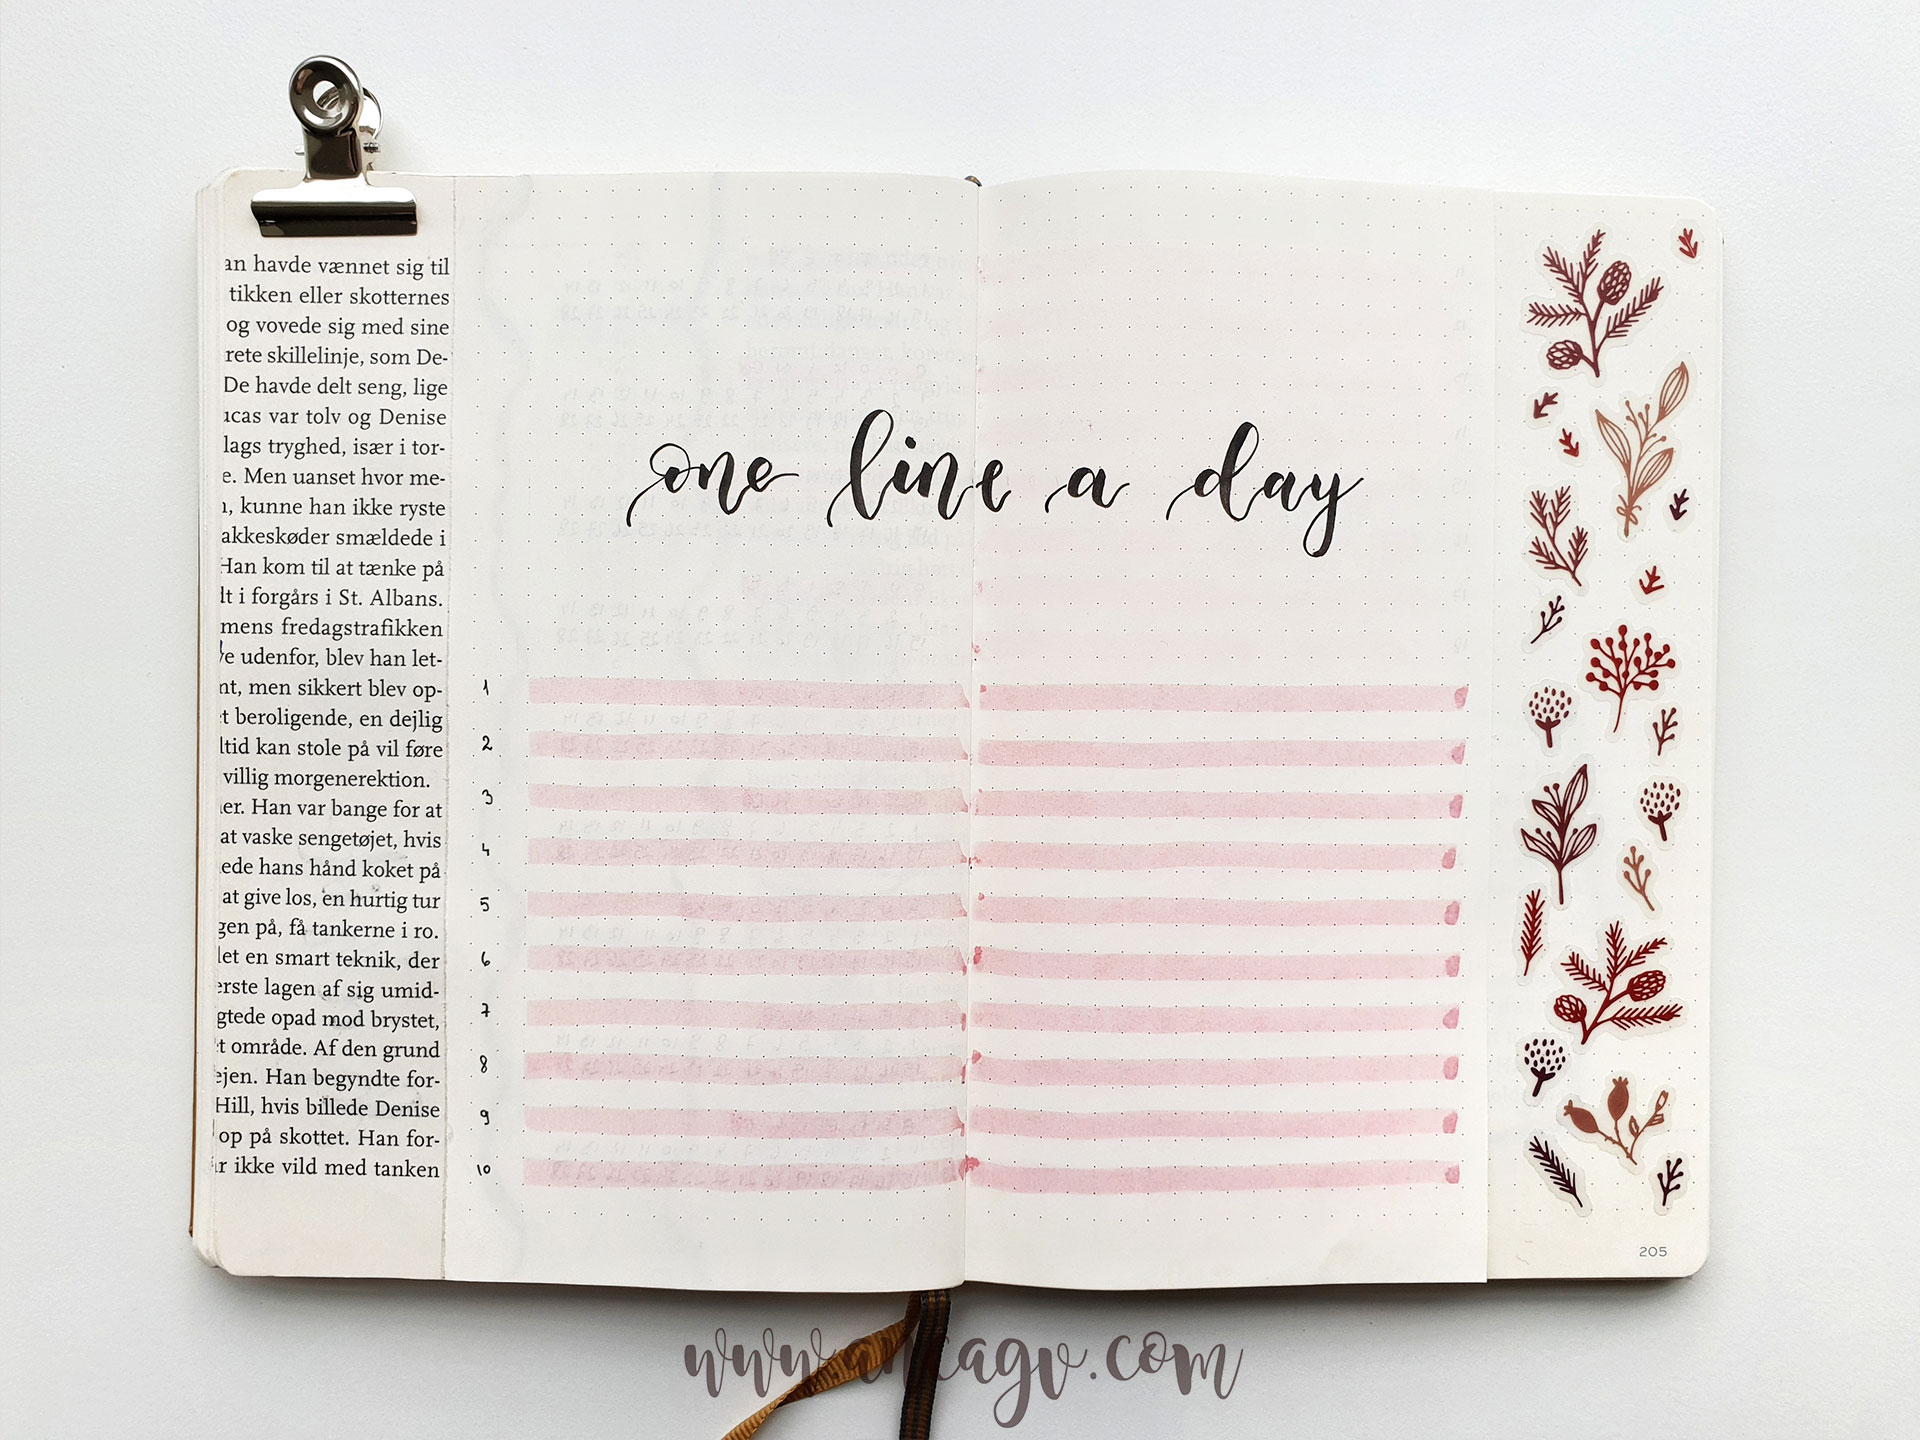 an havde vænnet sig til
tikken eller skotternes
og vovede sig med sine
rete skillelinje, som De-
De havde delt seng, lige
ucas var tolv og Denise
lags tryghed, især i tor-
e. Men uanset hvor me-
kunne han ikke ryste
akkeskøder smældede i
Han kom til at tænke på
dt i forgårs i St. Albans.
mens fredagstrafikken
udenfor, blev han let-
nt, men sikkert blev op-
et beroligende, en dejlig
ltid kan stole på vil føre
villig morgenerektion.
ner. Han var bange for at
at vaske sengetøjet, hvis
ede hans hånd koket på
at give los, en hurtig tur
gen på, få tankerne i ro.
let en smart teknik, der
erste lagen af sig umid-
gtede opad mod brystet,
et område. Af den grund
ejen. Han begyndte for-
Hill, hvis billede Denise
op på skottet. Han for-
ar ikke vild med tanken
one line a day
1
2
3
4
5
6
7
8
9
10
205